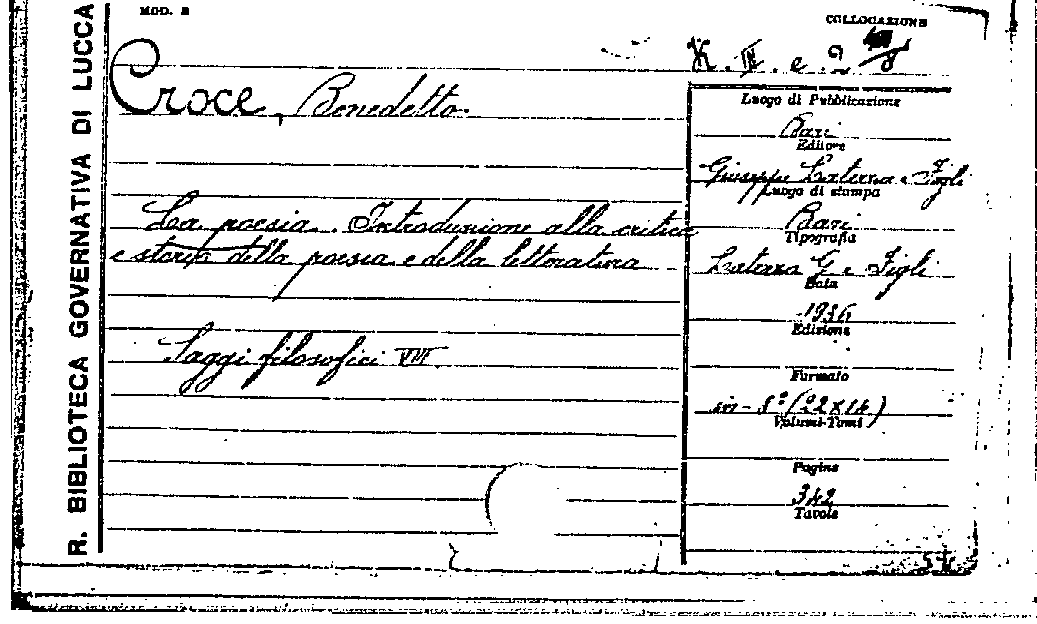 MOD. B
COLLOCAZIONE
R. BIBLIOTECA GOVERNATIVA DI LUCCA
K. IV. e. 2
Croce, Benedetto.
La poesia. Introduzione alla critica
e storia della poesia e della letteratura
Saggi filosofici VIII
Luogo di Pubblicazione
Bari
Editore
Giuseppe Laterza e Figli
Luogo di stampa
Bari
Tipografia
Laterza G e Figli
Data
1936
Edizione
Formato
in-8° (22x14)
Volumi-Tomi
Pagine
342
Tavole